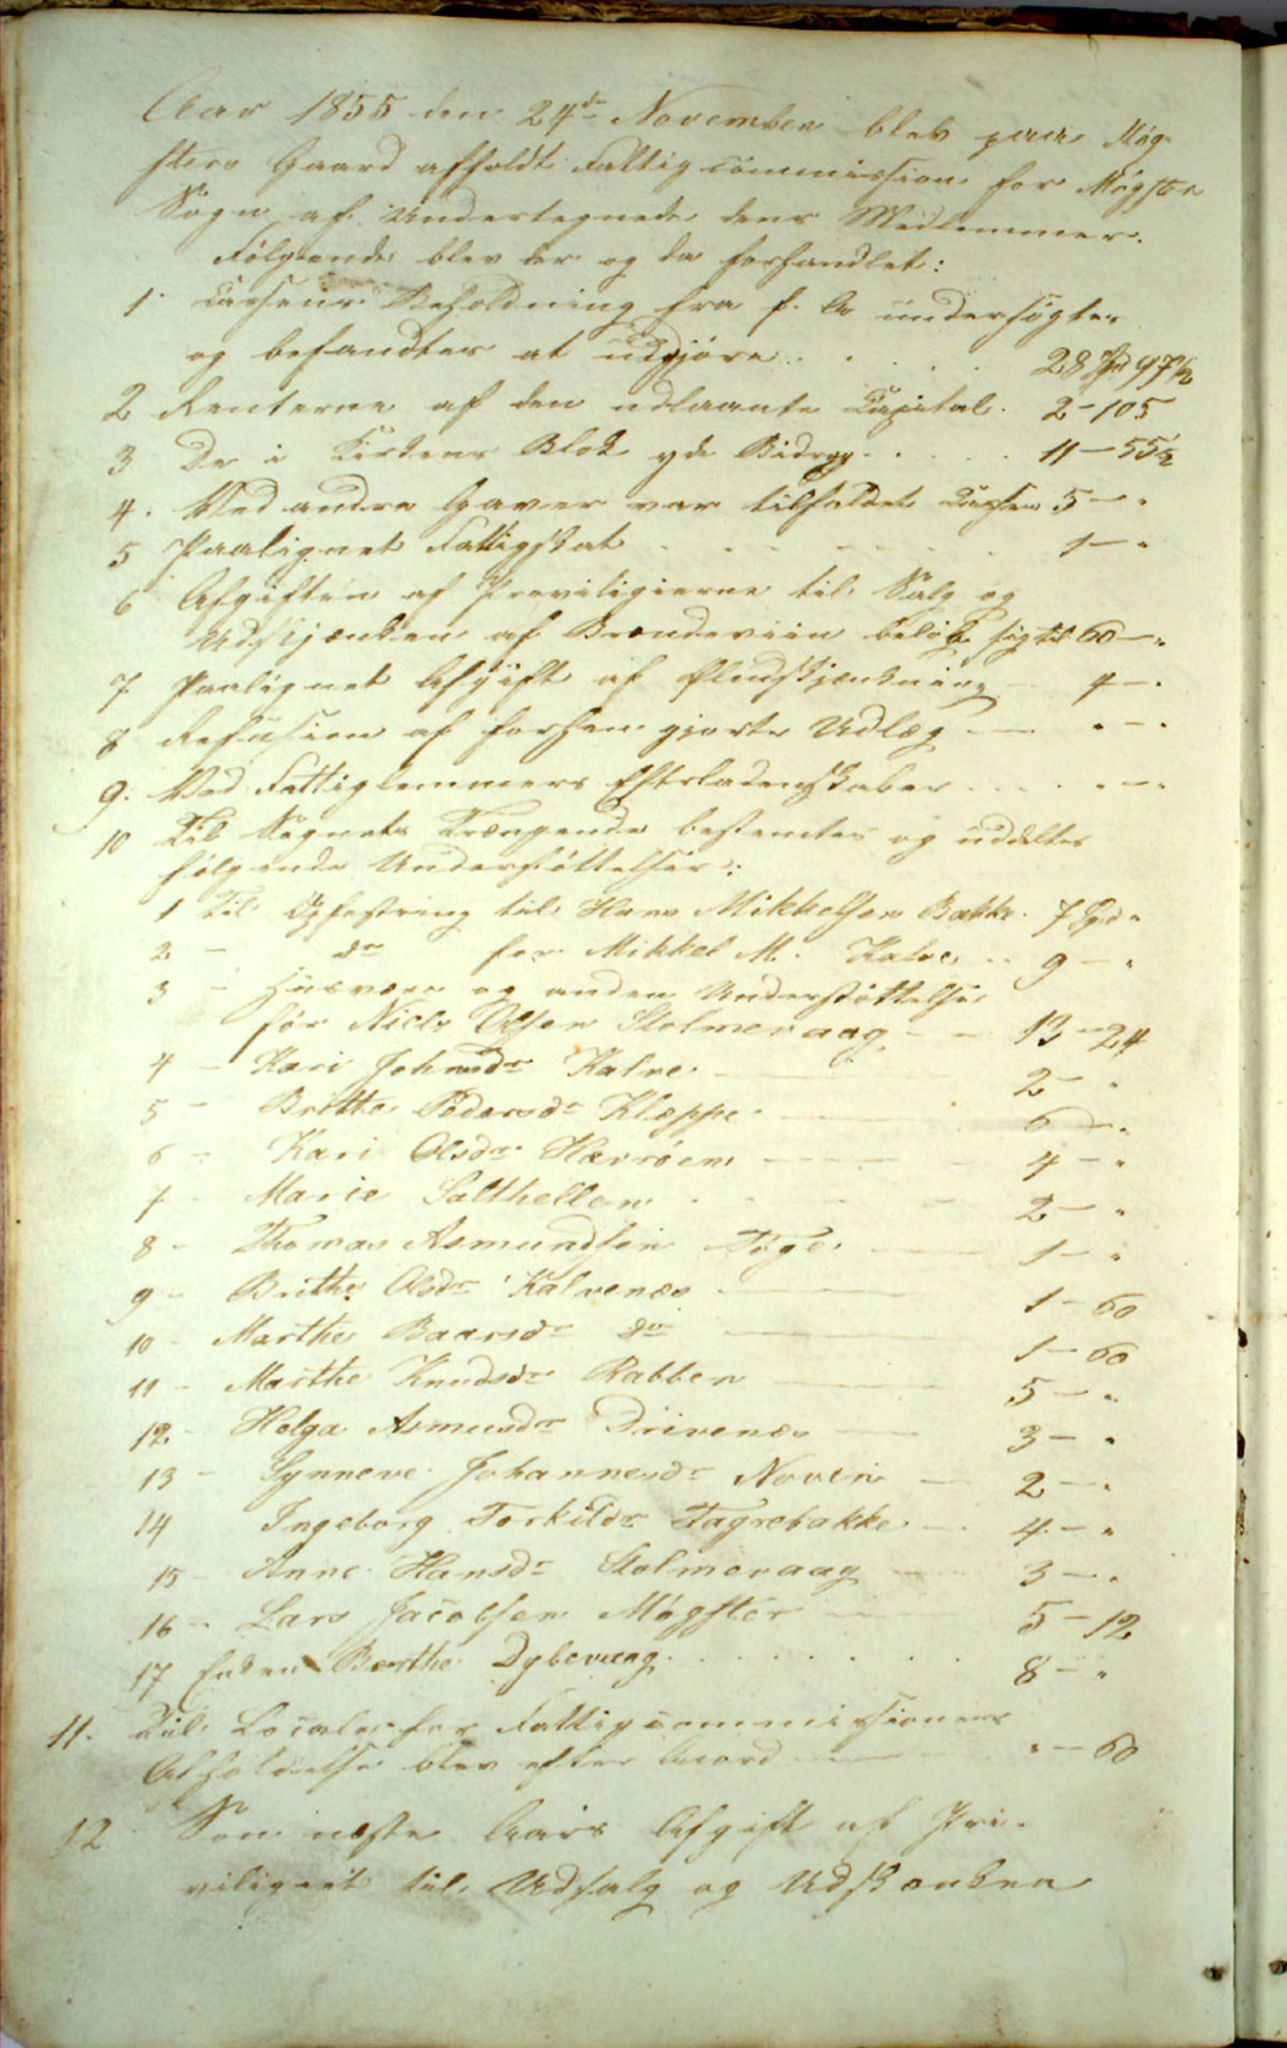 Aar 1855 den 24de November blev paa Møg-
sters Gaard afholdt Fattigcommission for Møgster
Sogn af undertegnede dens Medlemmer.
Følgende blev der og da forhandlet:
1. Cassens Beholdning fra f. A undersøgtes
og befandtes at udgjøre . . . . 28 Spd 97½
2 Renterne af den udlaante Capital. 2-105
3 De i Kirkens Blok ydte Bidrag . . . . 11-55½
4. Ved andre Gaver var tilfaldet Cassen 5-"
5 Paalignet Fattigskat . . . . . . 1-"
6 Afgiften af Previligierne til Salg og
Udskjænken af Brændeviin beløb sig til 60-"
7. Paalignet Afgift af Øludskjænkning - 4-"
8 Refusion af forhen gjorte Udlæg - "-"
9. Ved Fattiglemmers Efterladenskaber . . . "-"
10 Til Sognets Trængende bestemtes og uddeltes
følgende Understøttelser:
1 Til Opfostring til Hans Mikkelsen Bakke. 7 Spd "
2 - do for Mikkel M. Kalve . . 9-"
3 - Huusvære og anden Understøttelse
for Niels Olsen Stolmevaag - - 13-24
4 - Kari Johnsdr Kalve - 2-"
5 - Britte Pedersdr Kleppe - 6-"
6 - Kari Olsdr Hævrøen - 4-"
7 - Marie Salthellen . . . - 2-"
8 - Thomas Asmundsen Føge - 1-"
9 - Brithe Olsdr Kalvenæs - 1-60
10 - Marthe Baarsdr do - 1-60
11 - Marthe Knudsdr Rabben - 5-"
12 - Helga Asmundr Drivenæs - 3-"
13 - Synneve Johannesdr Noven - 2-"
14 Ingeborg Torkildr Fagrebakke - 4-"
15 - Anne Hansdr Stolmevaag - 3-"
16 - Lars Jacobsen Møgster - 5-12
17 Enken Berthe Dybevaag . . . . . . 8-"
11. Til Locale for Fattigcommissionens
Afholdelse blev efter Accord - "-60
12 Som næste Aars Afgift af Pri-
viligiet til Udsalg og Udskænken